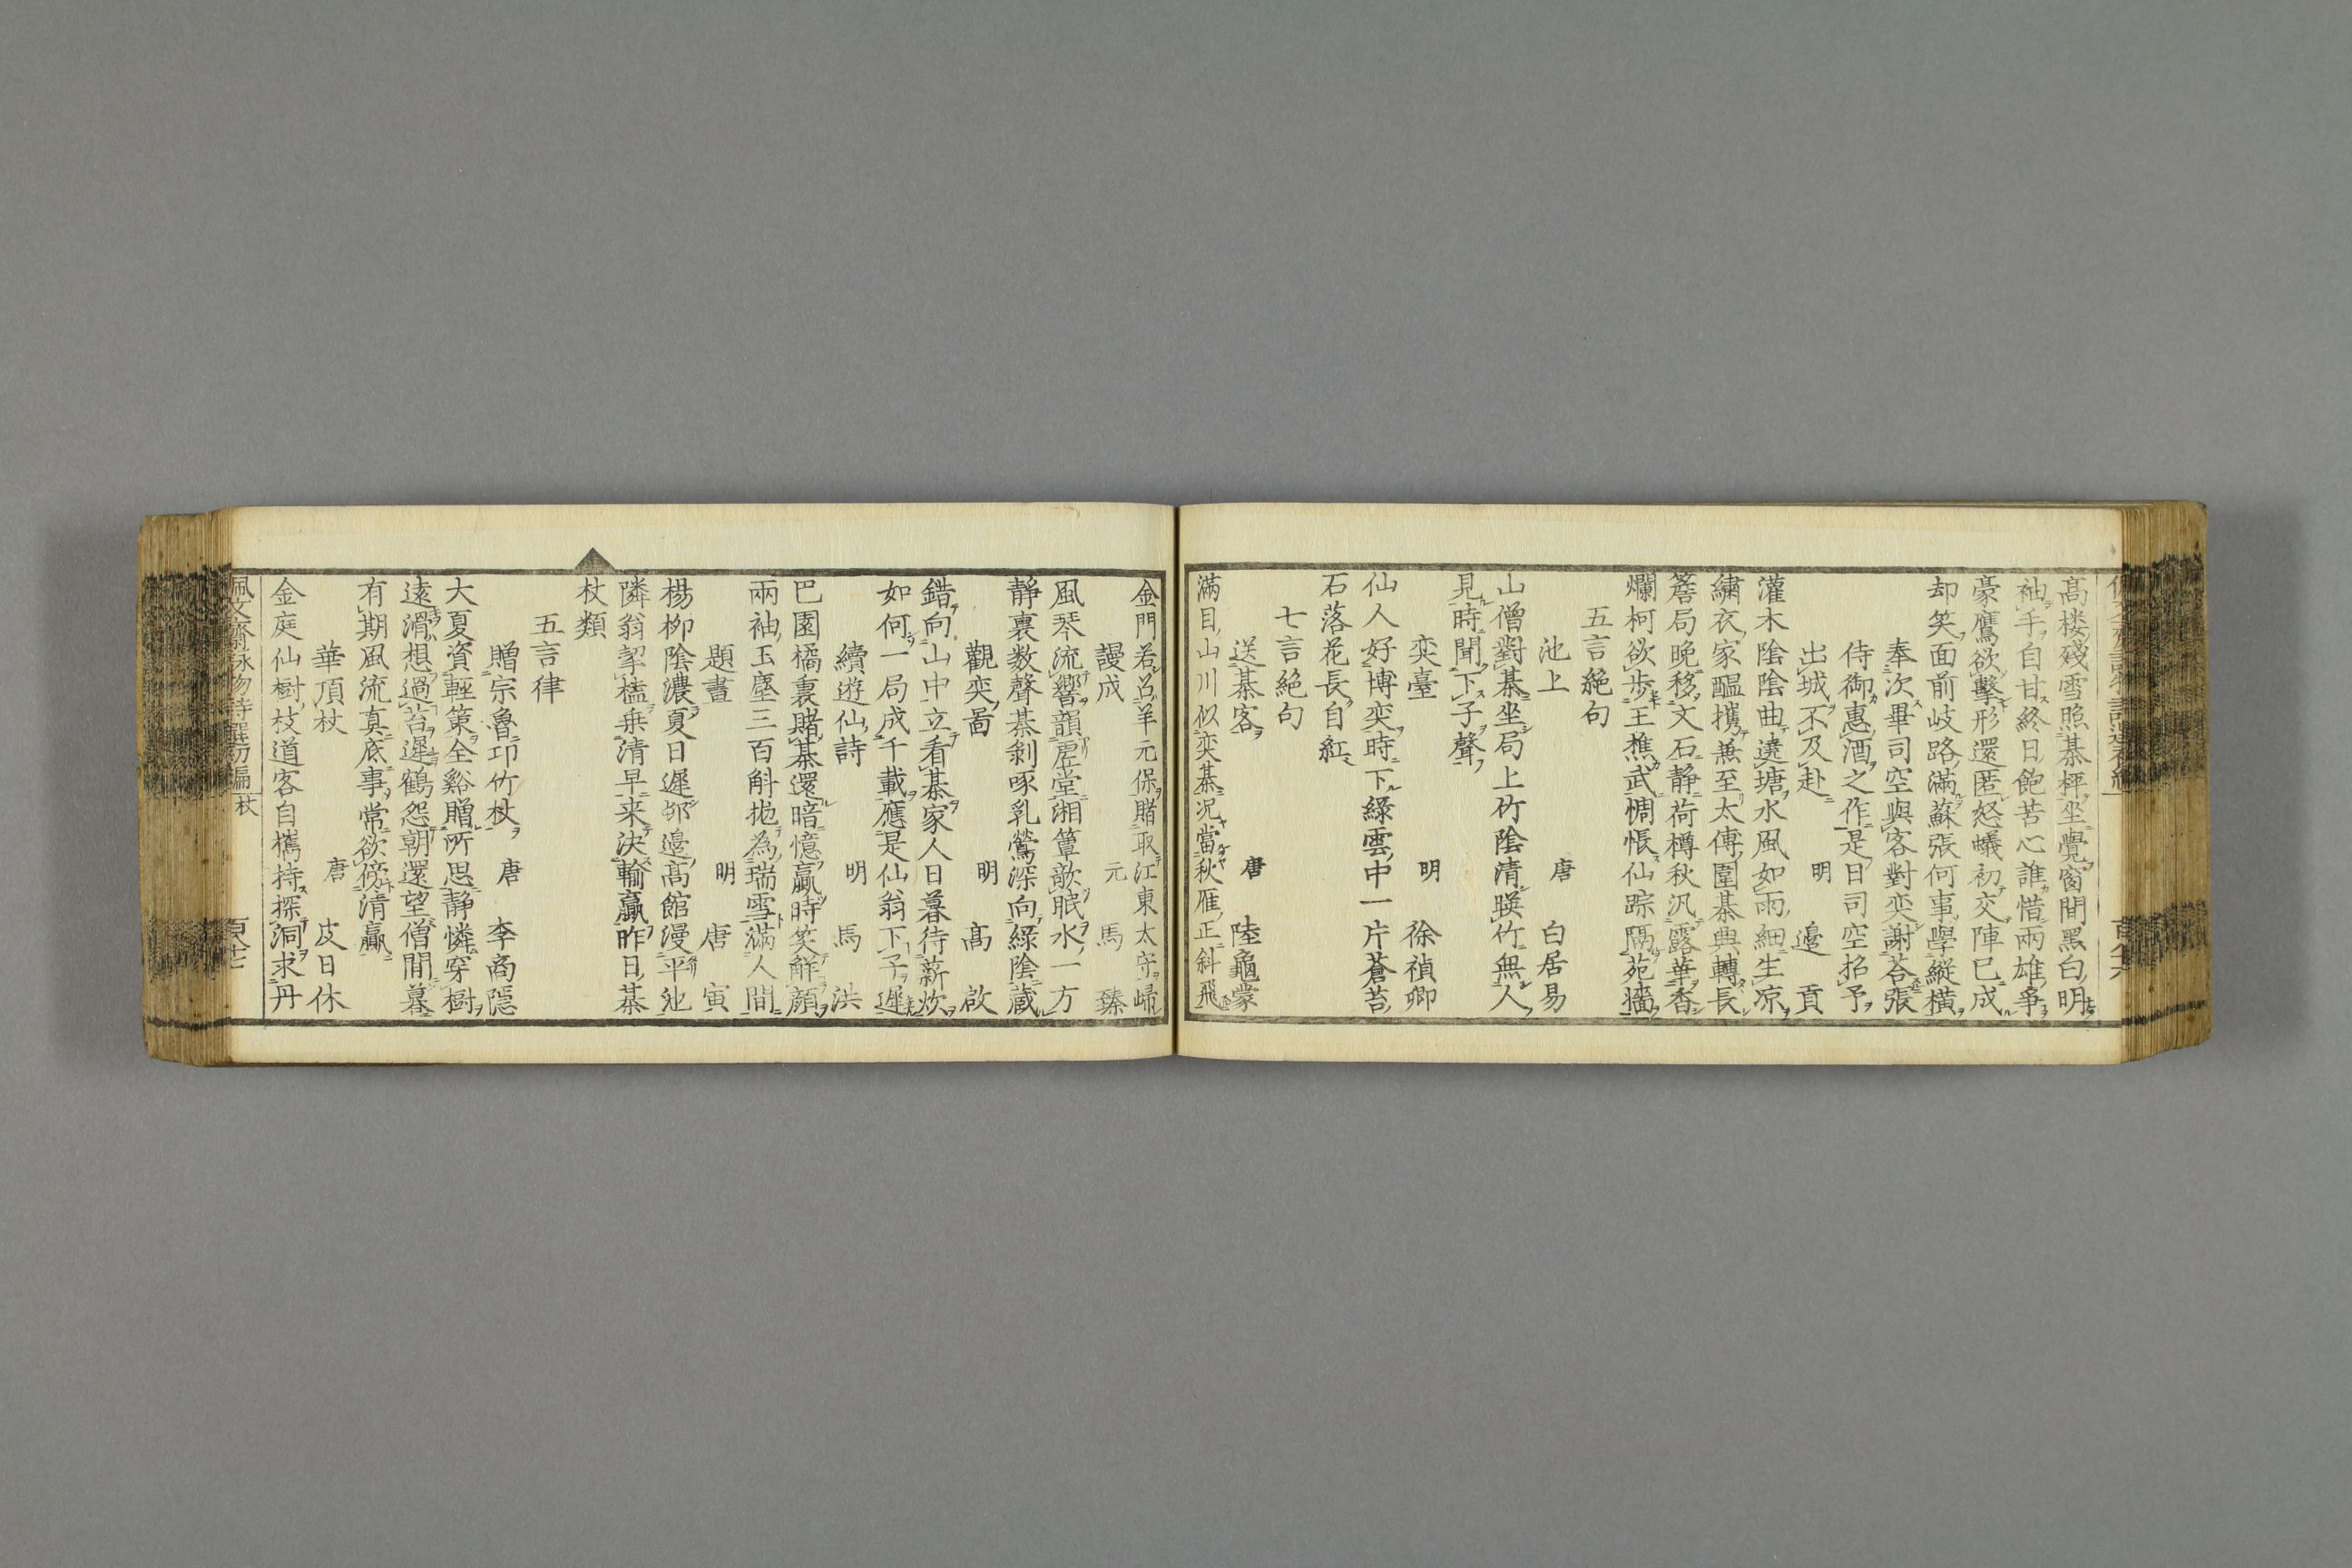 高楼殘雪照棊枰坐覺窗間黑白明
袖手自甘終日飽苦心誰惜兩雄争
豪鷹欲擊形還匿怒蟻初交陣已成
却笑面前岐路滿蘇張何事學縱橫
奉次畢司空與客對奕謝荅張
侍御惠酒之作是日司空招予
出城不及赴 明 邊貢
灌木陰陰曲遶塘水風如雨細生凉
繡衣家醖携兼至太傅圍棊興轉長
簷局晚移文石静荷樽秋汎露華香
爛柯欲歩王樵武惆悵仙踪隔苑墻
五言絶句
池上 唐 白居易
山僧對棊坐局上竹陰清暎竹無人
見時聞下子聲
奕臺 明 徐禎卿
仙人好博奕時下緑雲中一片蒼苔
石落花長自紅
七言絶句
送棊客 唐 陸龜蒙
滿目山川似奕棊况當秋雁正斜飛
金門若召羊元保賭取江東太守歸
謾成 元 馬臻
風琴流響韻虚堂湘簟歌眠水一方
静裏数聲棊剝啄乳鶯深向緑陰蔵
觀奕啚 明 高啟
錯向山中立看棊家人日暮待薪炊
如何一局成千載應是仙翁下子遲
續遊仙詩 明 馬洪
巴園橘裏賭棊還暗憶贏時笑解顔
兩袖玉塵三百斛抛為瑞雪滿人間
題畫 明 唐寅
楊柳陰濃夏日遲邨邊高館漫平池
隣翁挈榼乗清早来決輸贏昨日棊
杖類
五言律
贈宗魯卭竹杖 唐 李商隠
大夏資輕策全谿贈所思静憐穿樹
遠滑想過苔遲鶴怨朝還望僧閒暮
有期風流真底事常欲傍清羸
華頂杖 唐 皮日休
金庭仙樹枝道客自携持探洞求丹
佩文齋詠物詩選初編 杖 百八十七